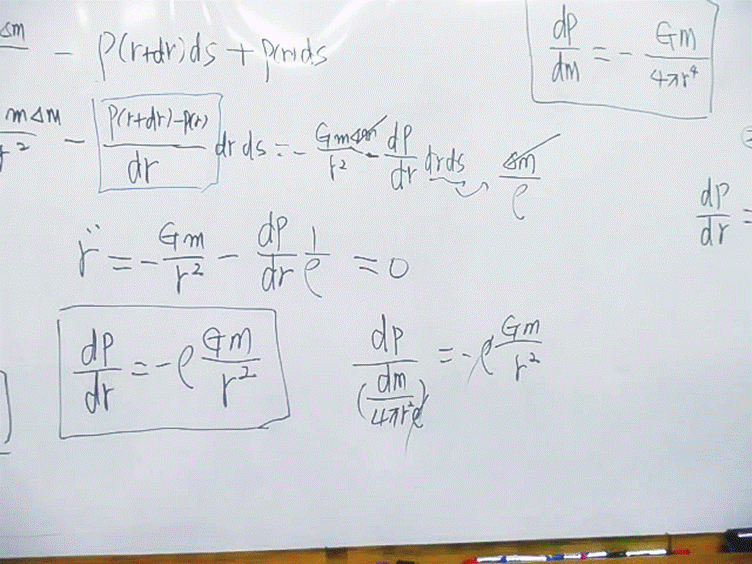 Δm − P(r+dr)ds + P(r)ds
dP/dm = − Gm/4πr⁴
mΔm/r² − P(r+dr)−P(r)/dr drds = − GmΔm/r² − dP/dr drds Δm/ρ
dP/dr =
r̈ = − Gm/r² − dP/dr 1/ρ = 0
dP/dr = −ρ Gm/r²
dP/(dm/4πr²ρ) = −ρ Gm/r²